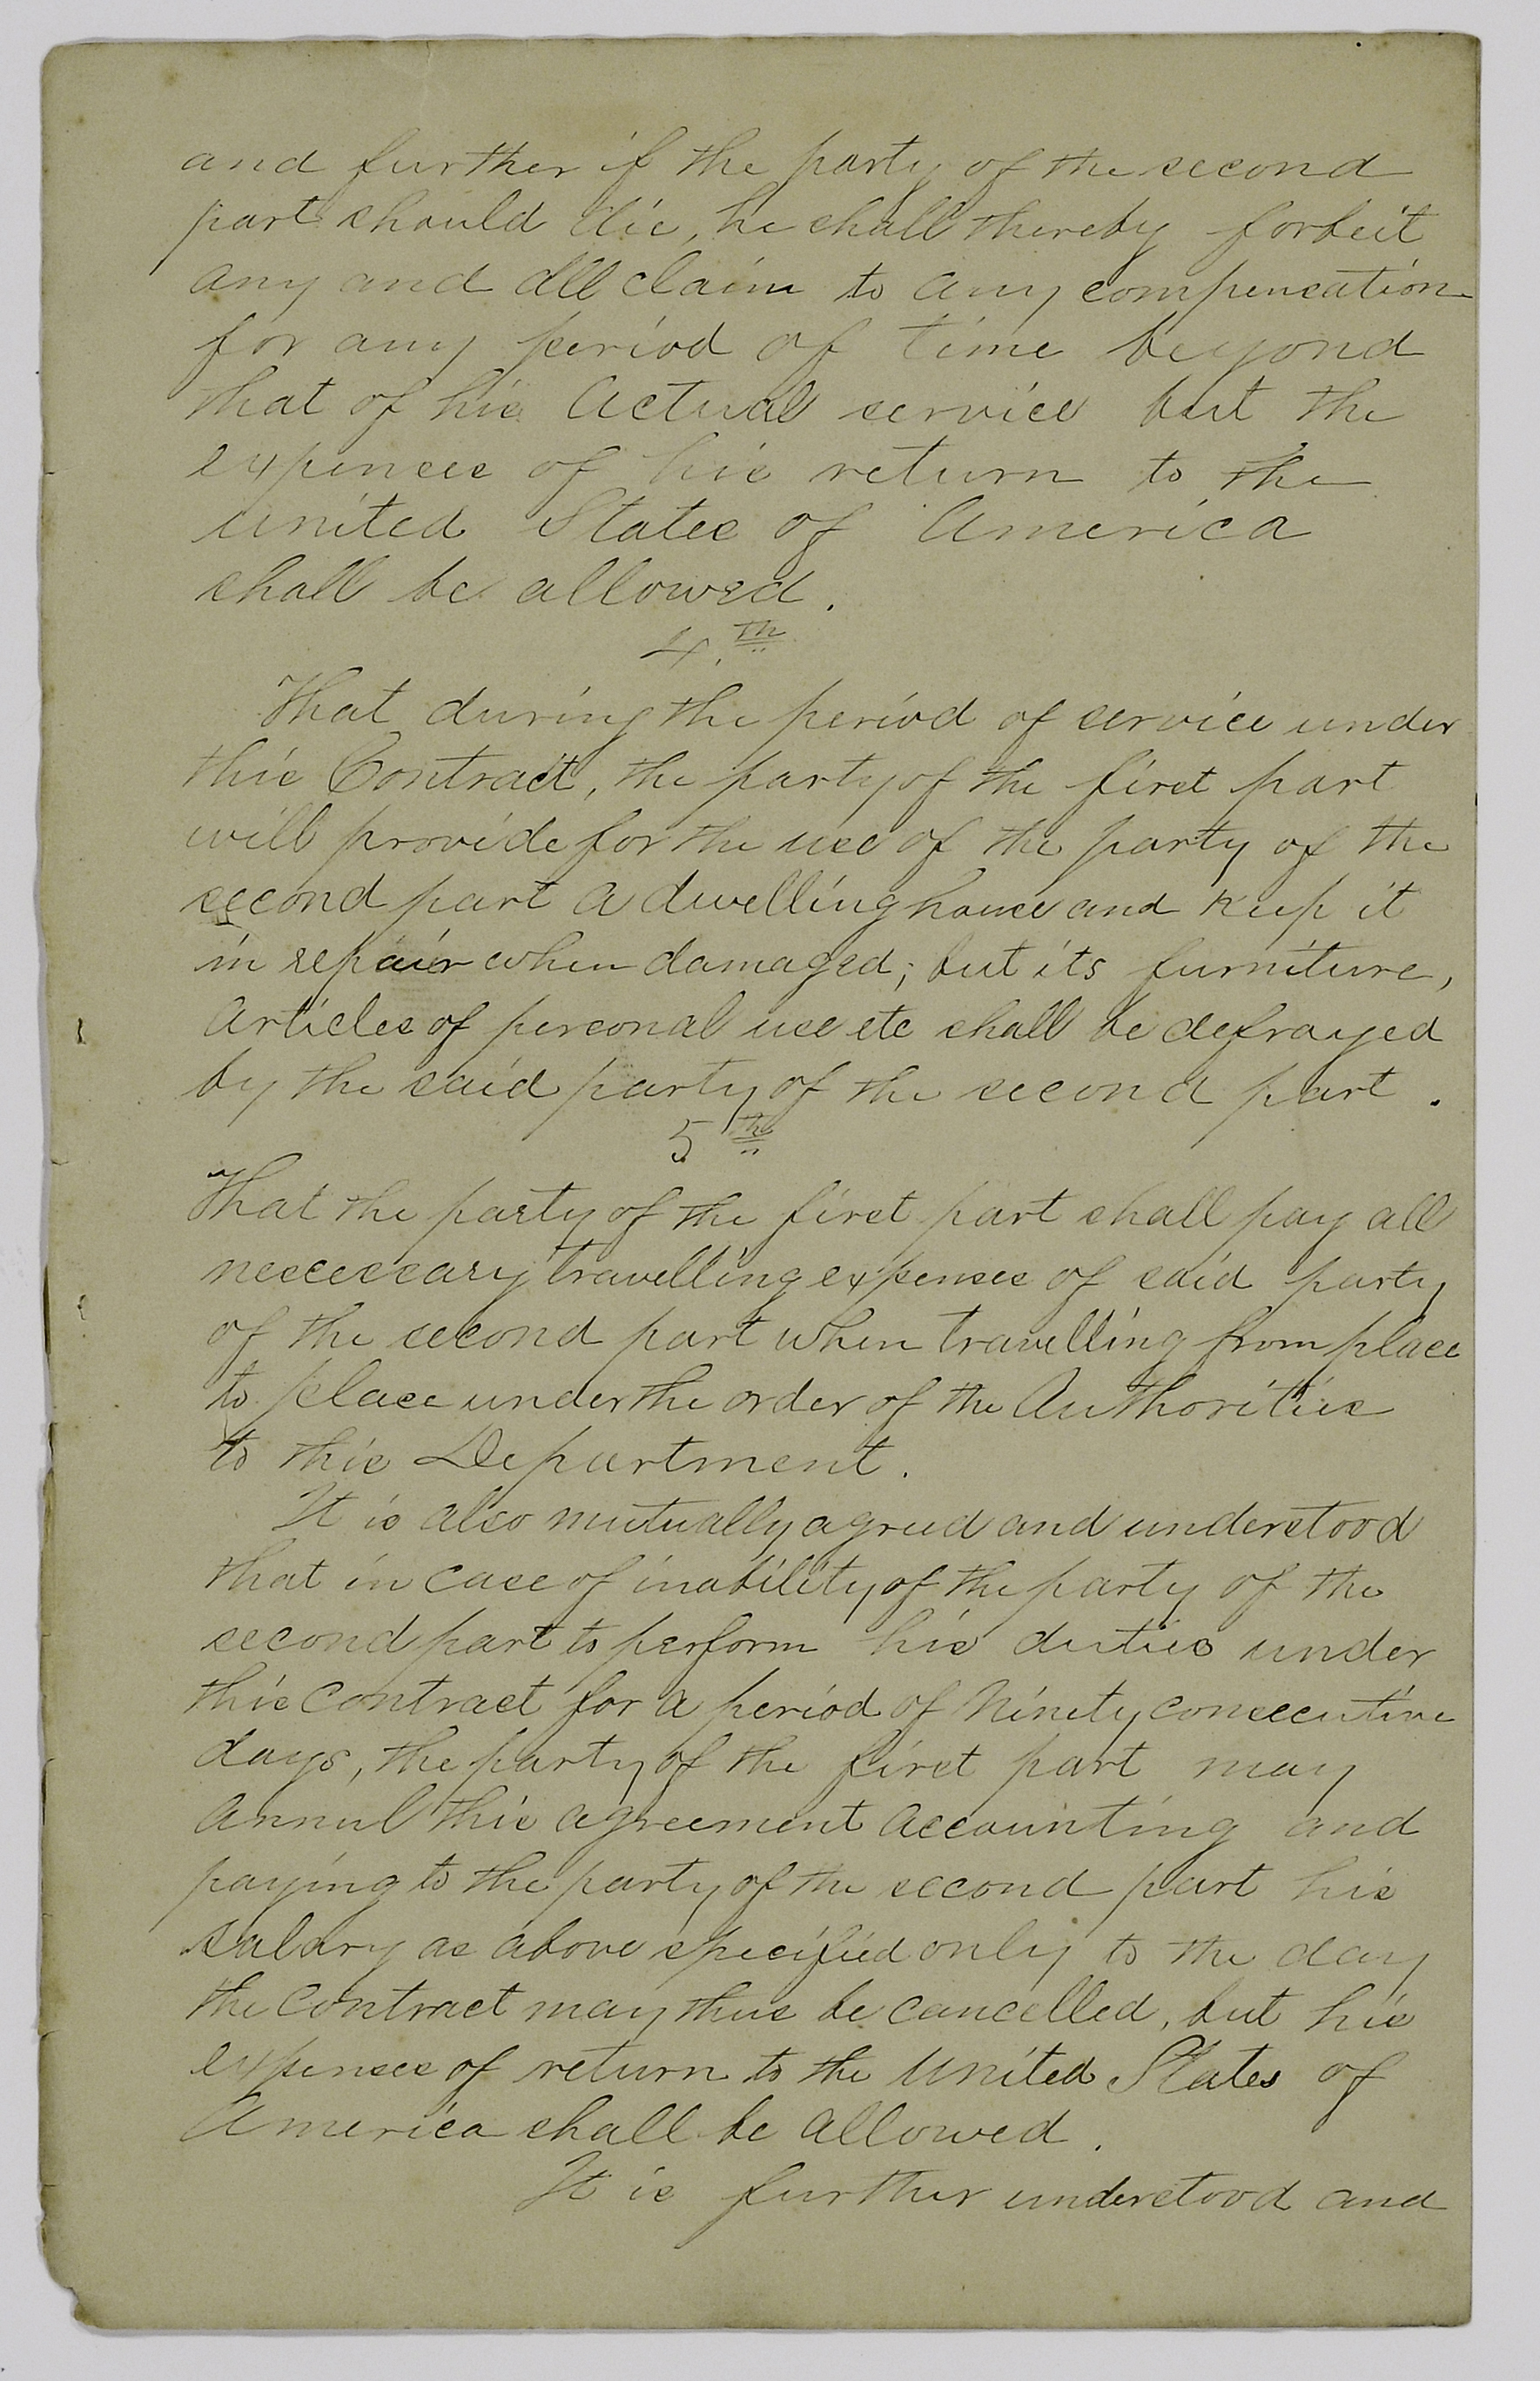 and further if the party of the second
part should die, he shall thereby forfeit
any and all claim to any compensation
for any period of time beyond
that of his actual service but the
expenses of his return to the
United States of America
shall be allowed.
4.th
That during the period of service under
this Contract, the party of the first part
will provide for the use of the party of the
second part a dwelling house and keep it
in repair when damaged; but its furniture,
articles of personal use etc shall be defrayed
by the said party of the second part.
5th
That the party of the first part shall pay all
nescessary travelling expenses of said party
of the second part when travelling from place
to place under the order of the Authorities
to this Department.
It is also mutually agreed and understood
that in case of inability of the party of the
second part to perform his duties under
this contract for a period of Ninety consecutive
days, the party of the first part may
annul this agreement accounting and
paying to the party of the second part his
salary as above specified only to the day
the contract may thus be cancelled, but his
expenses of return to the United States of
America shall be allowed.
It is further understood and